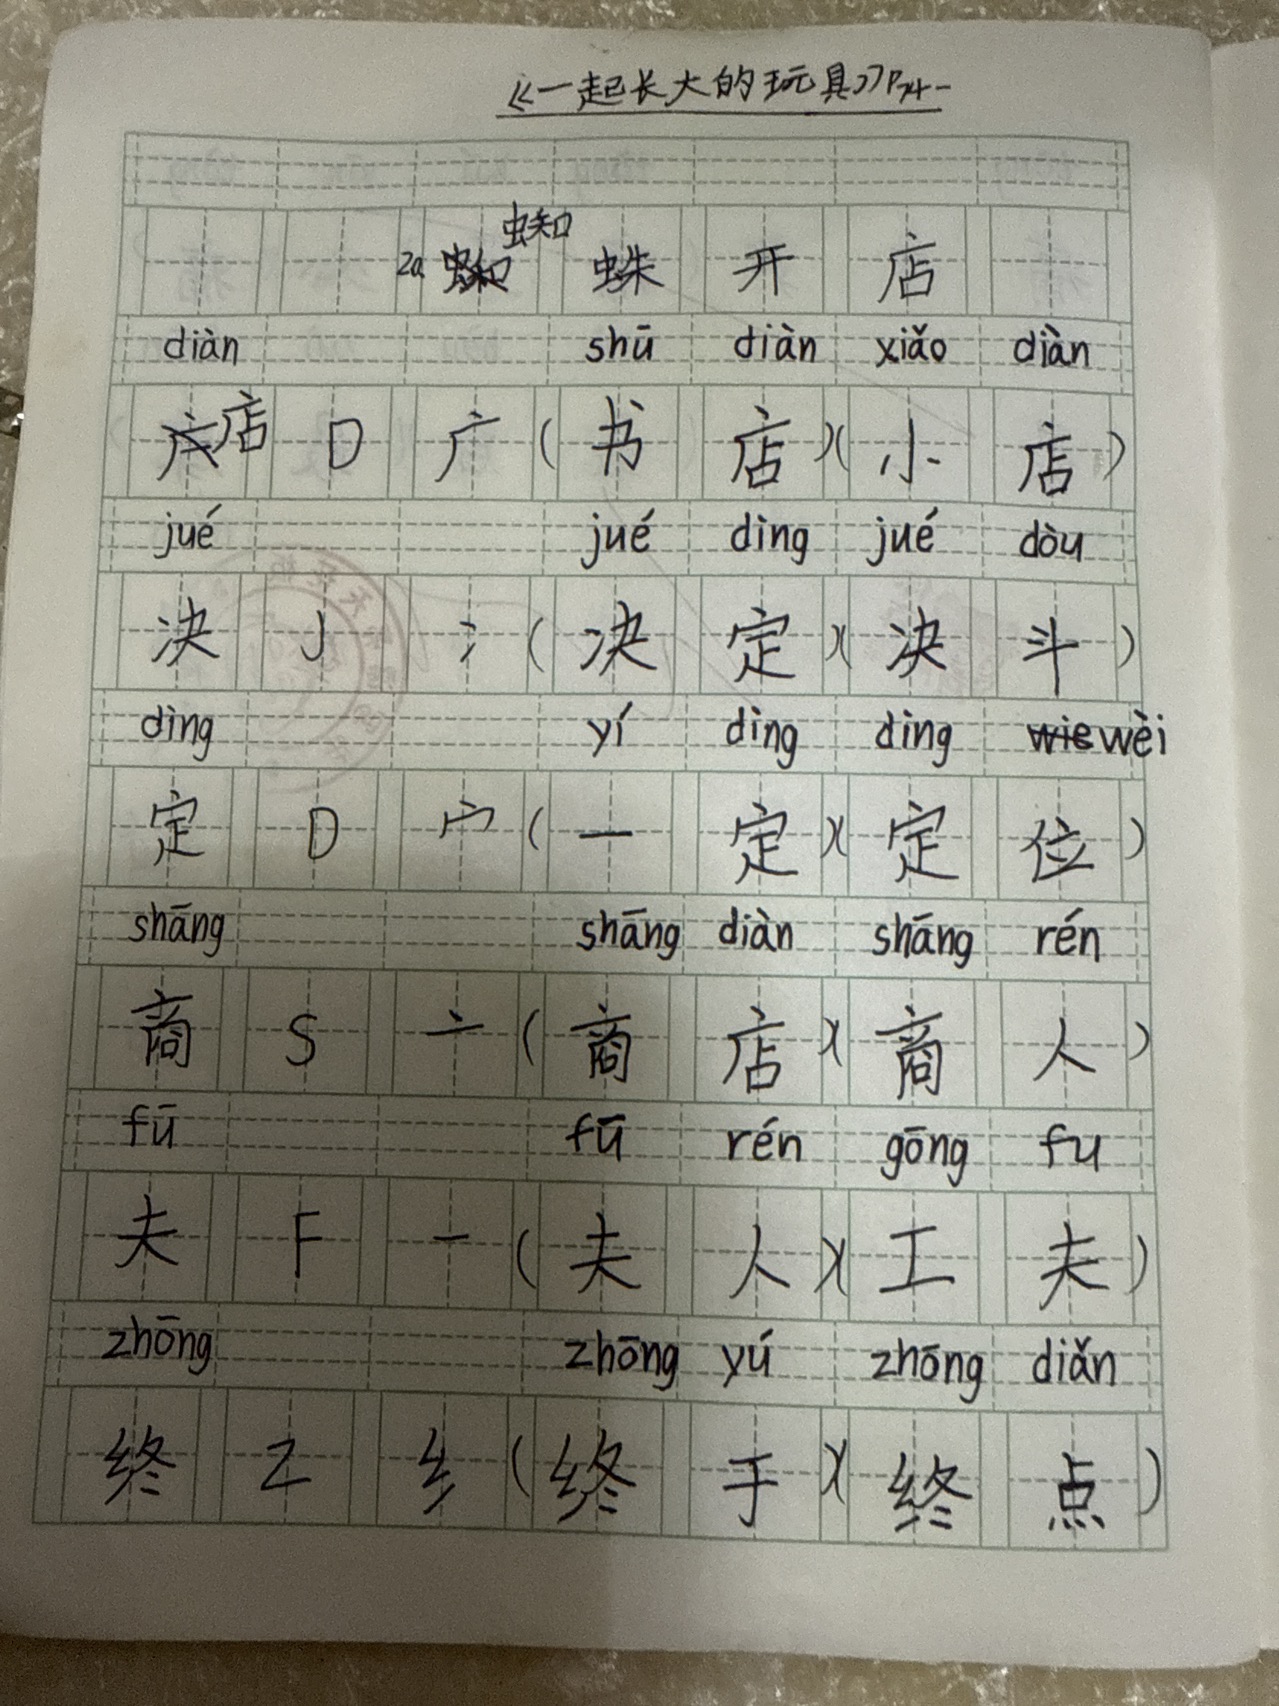 《一起长大的玩具》P74-
20 蜘 蛛 开 店
diàn shū diàn xiǎo diàn
店 D 广 ( 书 店 )( 小 店 )
jué jué dìng jué dòu
决 J 冫 ( 决 定 )( 决 斗 )
dìng yí dìng dìng wèi
定 D 宀 ( 一 定 )( 定 位 )
shāng shāng diàn shāng rén
商 S 亠 ( 商 店 )( 商 人 )
fū fū rén gōng fu
夫 F 一 ( 夫 人 )( 工 夫 )
zhōng zhōng yú zhōng diǎn
终 Z 纟 ( 终 于 )( 终 点 )